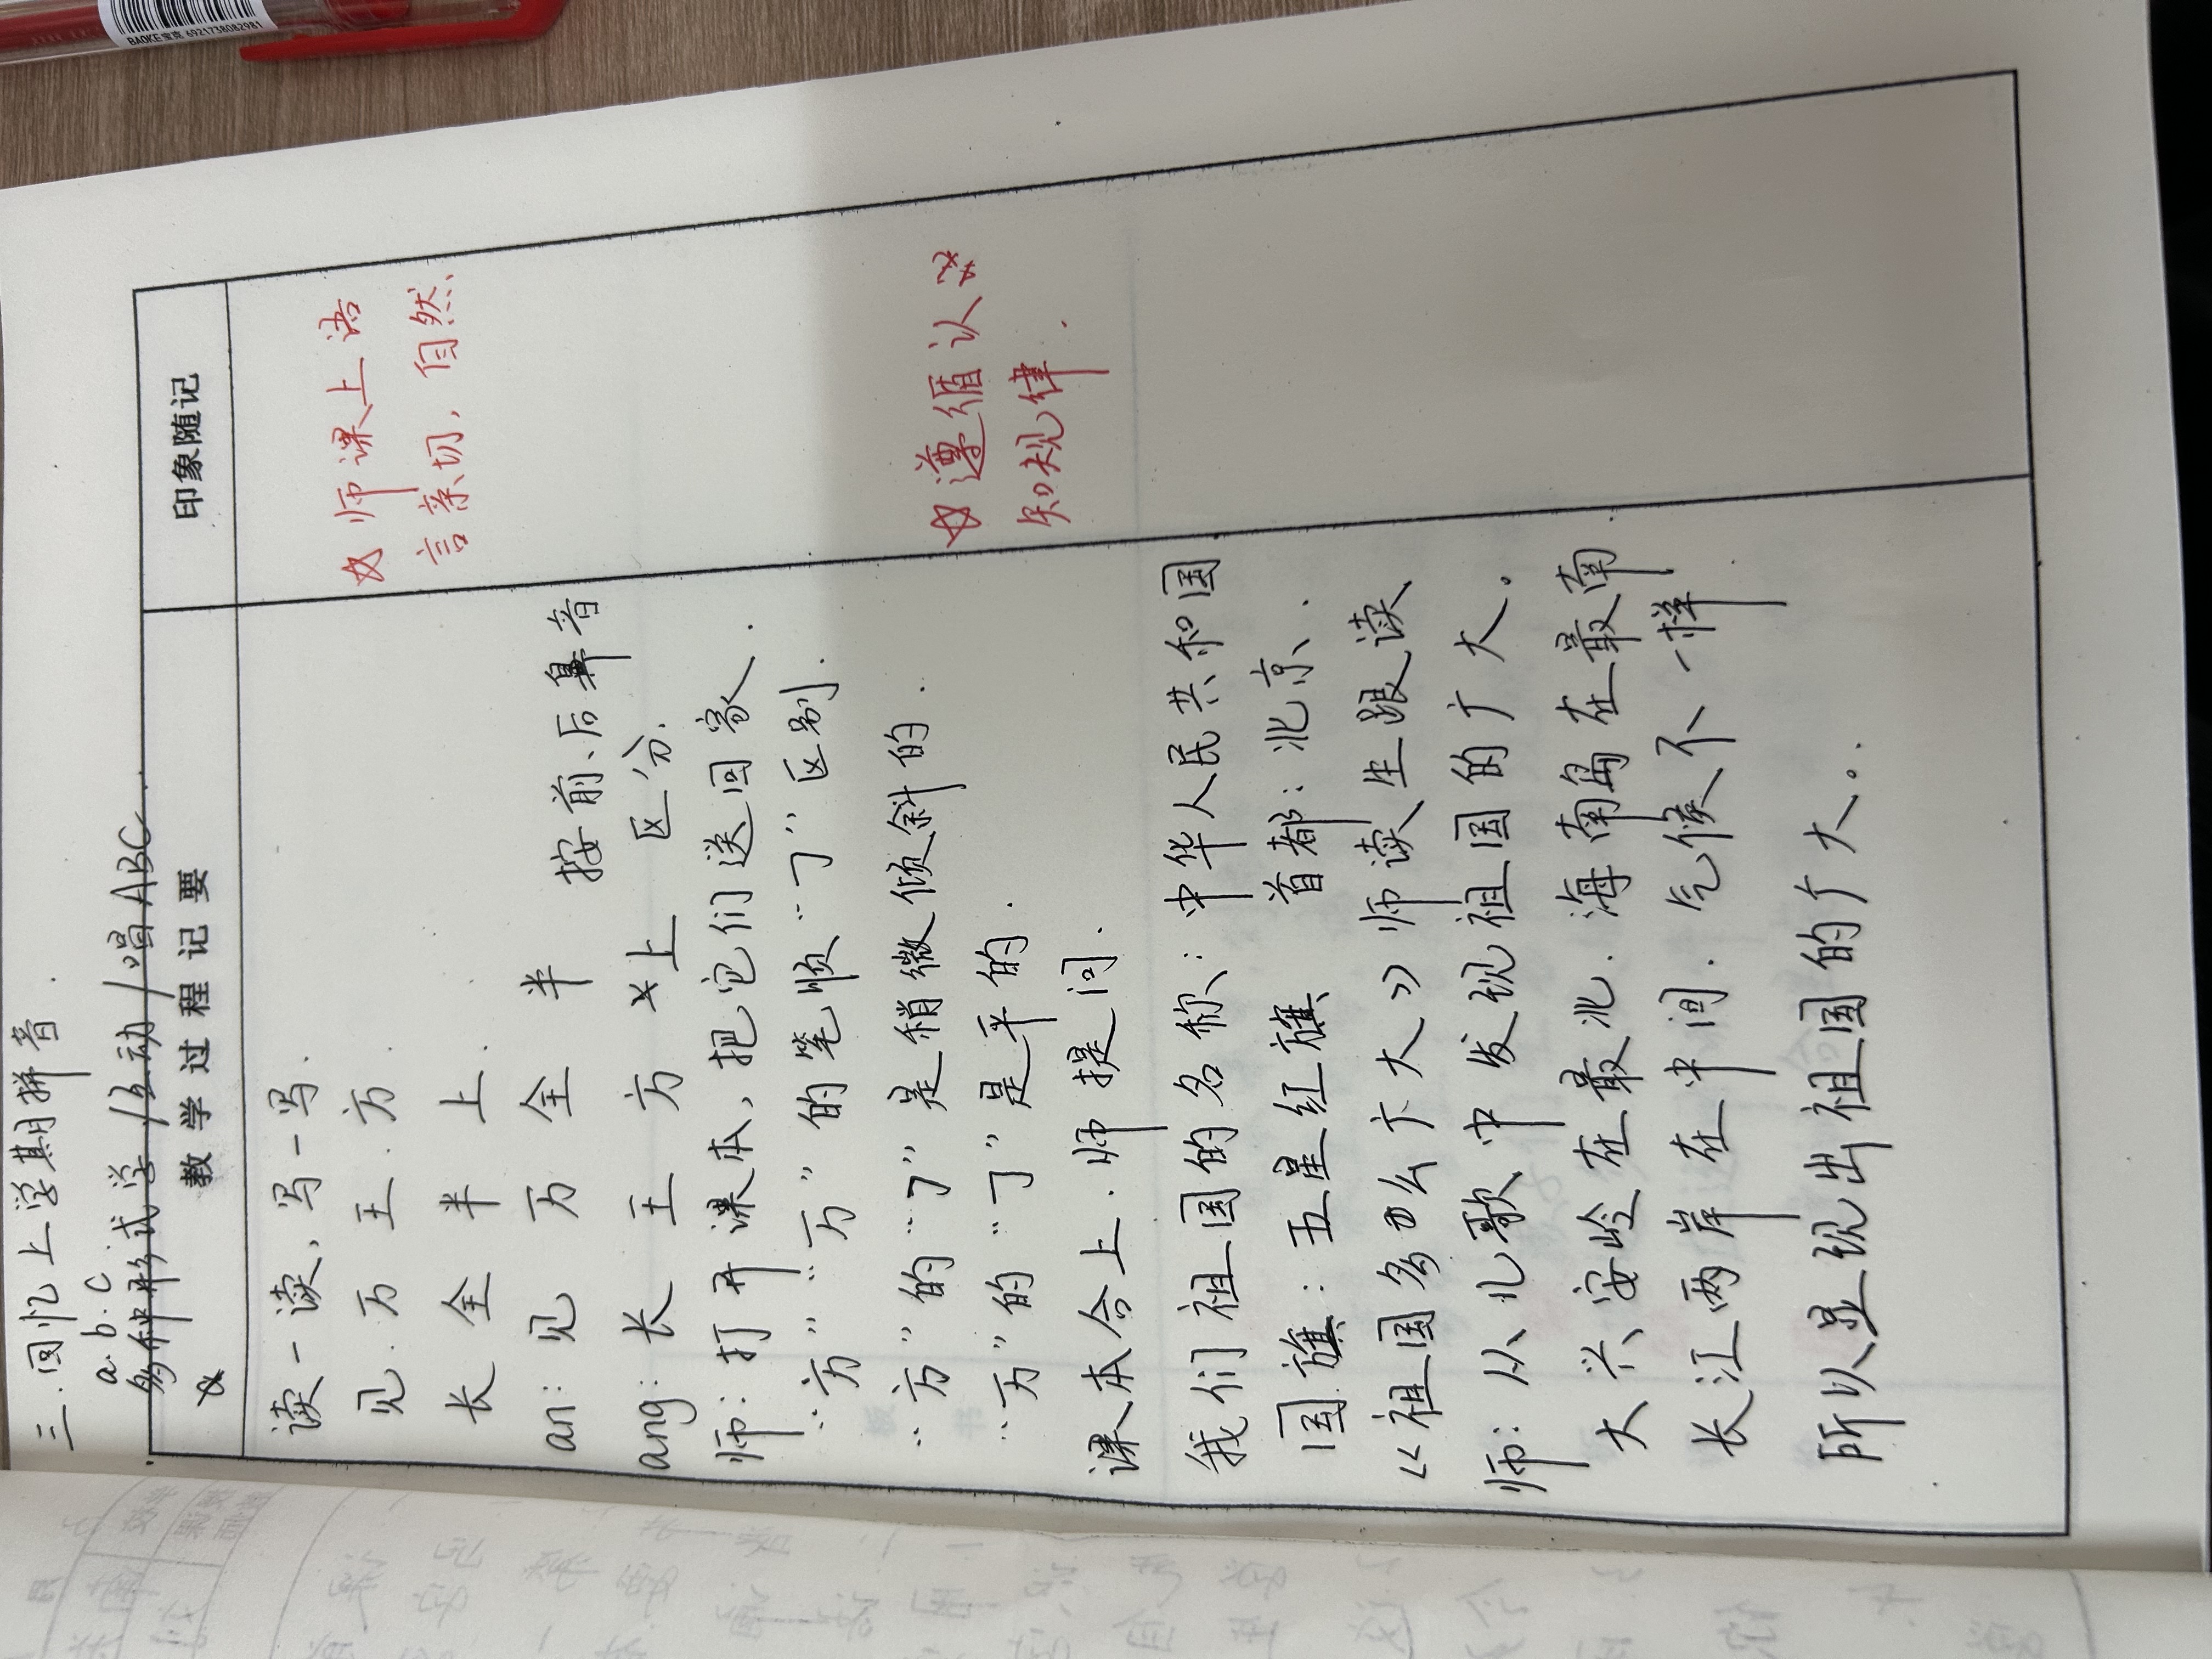 BAOKE宝克 6921738082981
三.回忆上学期拼音.
a.b.c
多种形式学/互动/唱ABC.
教学过程记要
印象随记
读一读、写一写.
见.万 王.方
长 全 半 上.
an: 见 万 全 半 按前、后鼻音
ang: 长 王 方 上 区分.
师: 打开课本, 把它们送回家.
“方”“万”的笔顺“㇆”区别.
“方”的“㇆”是稍微倾斜的.
“万”的“㇆”是平的.
课本合上. 师提问.
我们祖国的名称: 中华人民共和国
国旗: 五星红旗 首都: 北京.
《祖国多么广大》师读生跟读
师: 从儿歌中发现祖国的广大.
大兴安岭在最北. 海南岛在最南
长江两岸在中间. 气候不一样
所以显现出祖国的广大.。
☆师课上语
言亲切, 自然.
☆遵循认☆
知规律.